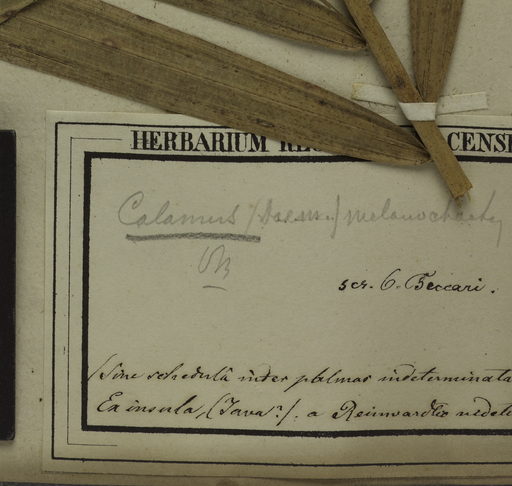 HERBARIUM RE CENS
Calamus (Daem.) melanochaetes
scr. O. Beccari.
(Sine schedulâ inter palmas indeterminata
Ex insula, (Java?). a Reinwardtio